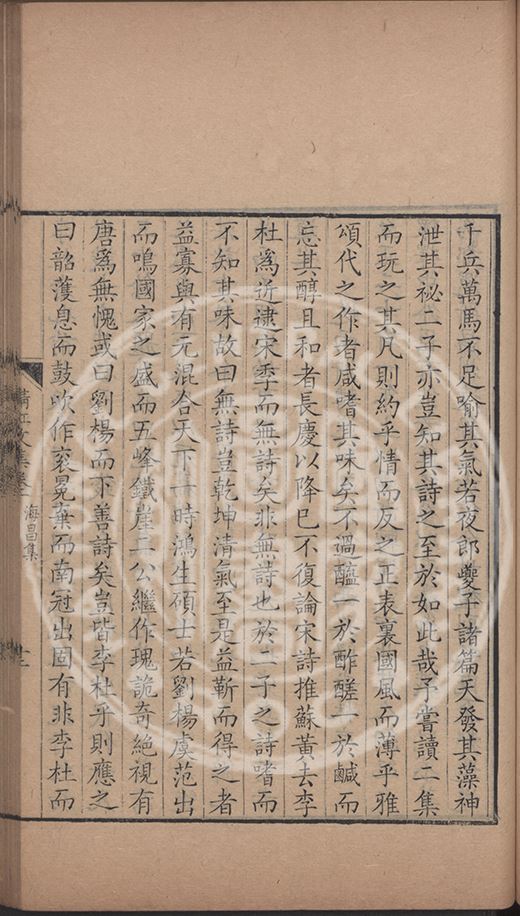 千兵萬馬不足喻其氣若夜郎夔子諸篇天發其藻神
泄其祕二子亦豈知其詩之至於如此哉予嘗讀二集
而玩之其凡則約乎情而反之正表裏國風而薄乎雅
頌代之作者咸嗜其味矣不過醯一於酢醝一於鹹而
忘其醇且和者長慶以降已不復論宋詩推蘇黃去李
杜爲近逮宋季而無詩矣非無詩也於二子之詩嗜而
不知其味故曰無詩豈乾坤清氣至是益靳而得之者
益寡與有元混合天下一時鴻生碩士若劉楊虞范出
而鳴國家之盛而五峰鐵崖二公繼作瑰詭奇絕視有
唐爲無愧或曰劉楊而下善詩矣豈皆李杜乎則應之
曰韶頀息而鼓吹作衮冕棄而南冠出固有非李杜而
清江文集卷一
海昌集